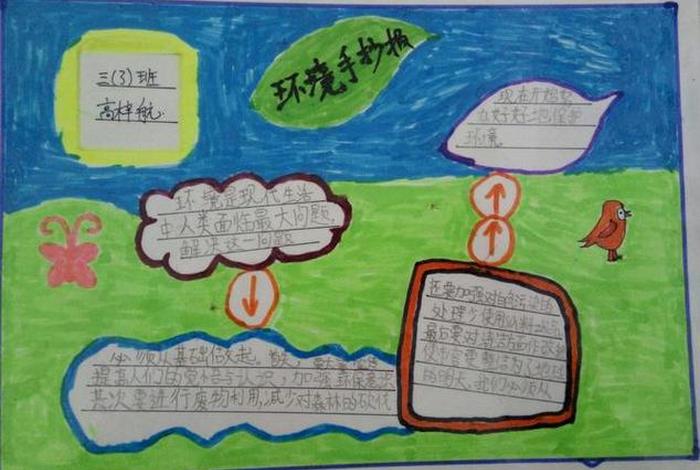 三(3)班
高梓航
环境手抄报
现在开始要
好好地保护
环境。
环境是现代生活
中人类面临最大问题,
解决这一问题
必须从基础做起。首先,
提高人们的觉悟与认识,加强环保意识
其次要进行废物利用,减少对森林的砍伐
还要加强对白色污染的
处理少使用
最后要对
使
的明天,我们必须从